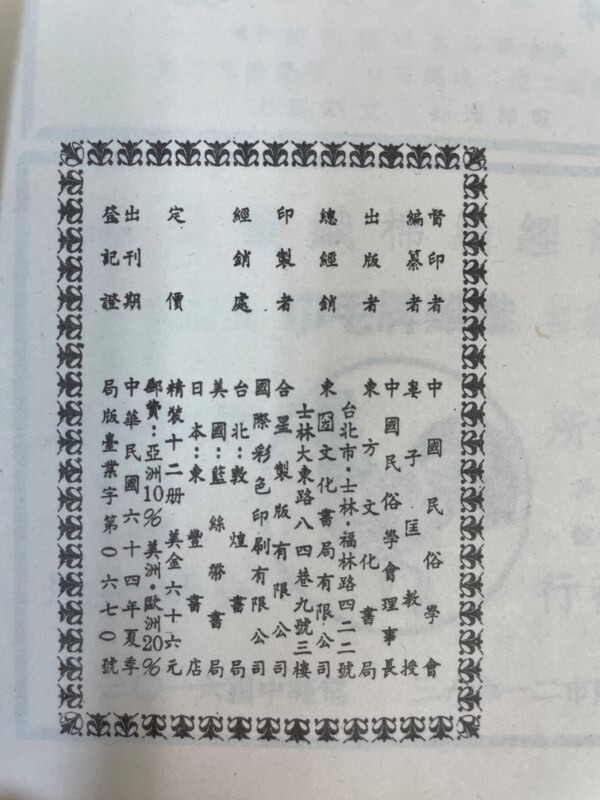 督印者 中國民俗學會
編纂者 婁子匡教授
中國民俗學會理事長
出版者 東方文化書局
台北市·士林·福林路四二二號
總經銷 東文化書局有限公司
士林大東路八四巷九號三樓
印製者 合星製版有限公司
國際彩色印刷有限公司
經銷處 台北:敦煌書局
美國:藍絲帶書局
日本:東豐書店
定價 精裝十二册 美金六十六元
郵費:亞洲10% 美洲·歐洲20%
出刊期 中華民國六十四年夏季
登記證 局版臺業字第〇六七〇號